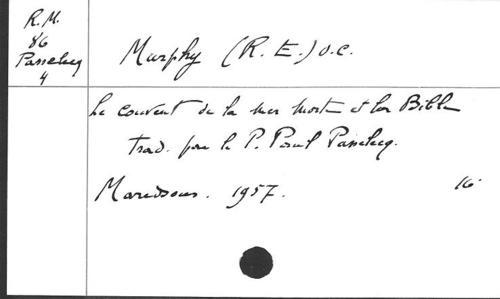 R. M.
86
Passelecq
4
Murphy (R. E.) o.c.
Le couvent de la mer morte et la Bible
trad. par le P. Paul Passelecq.
Maredsous. 1957.
16